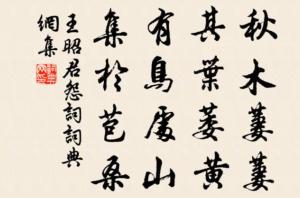 秋木萋萋
其葉萎黃
有鳥處山
集於苞桑
王昭君怨詞詞典
網集